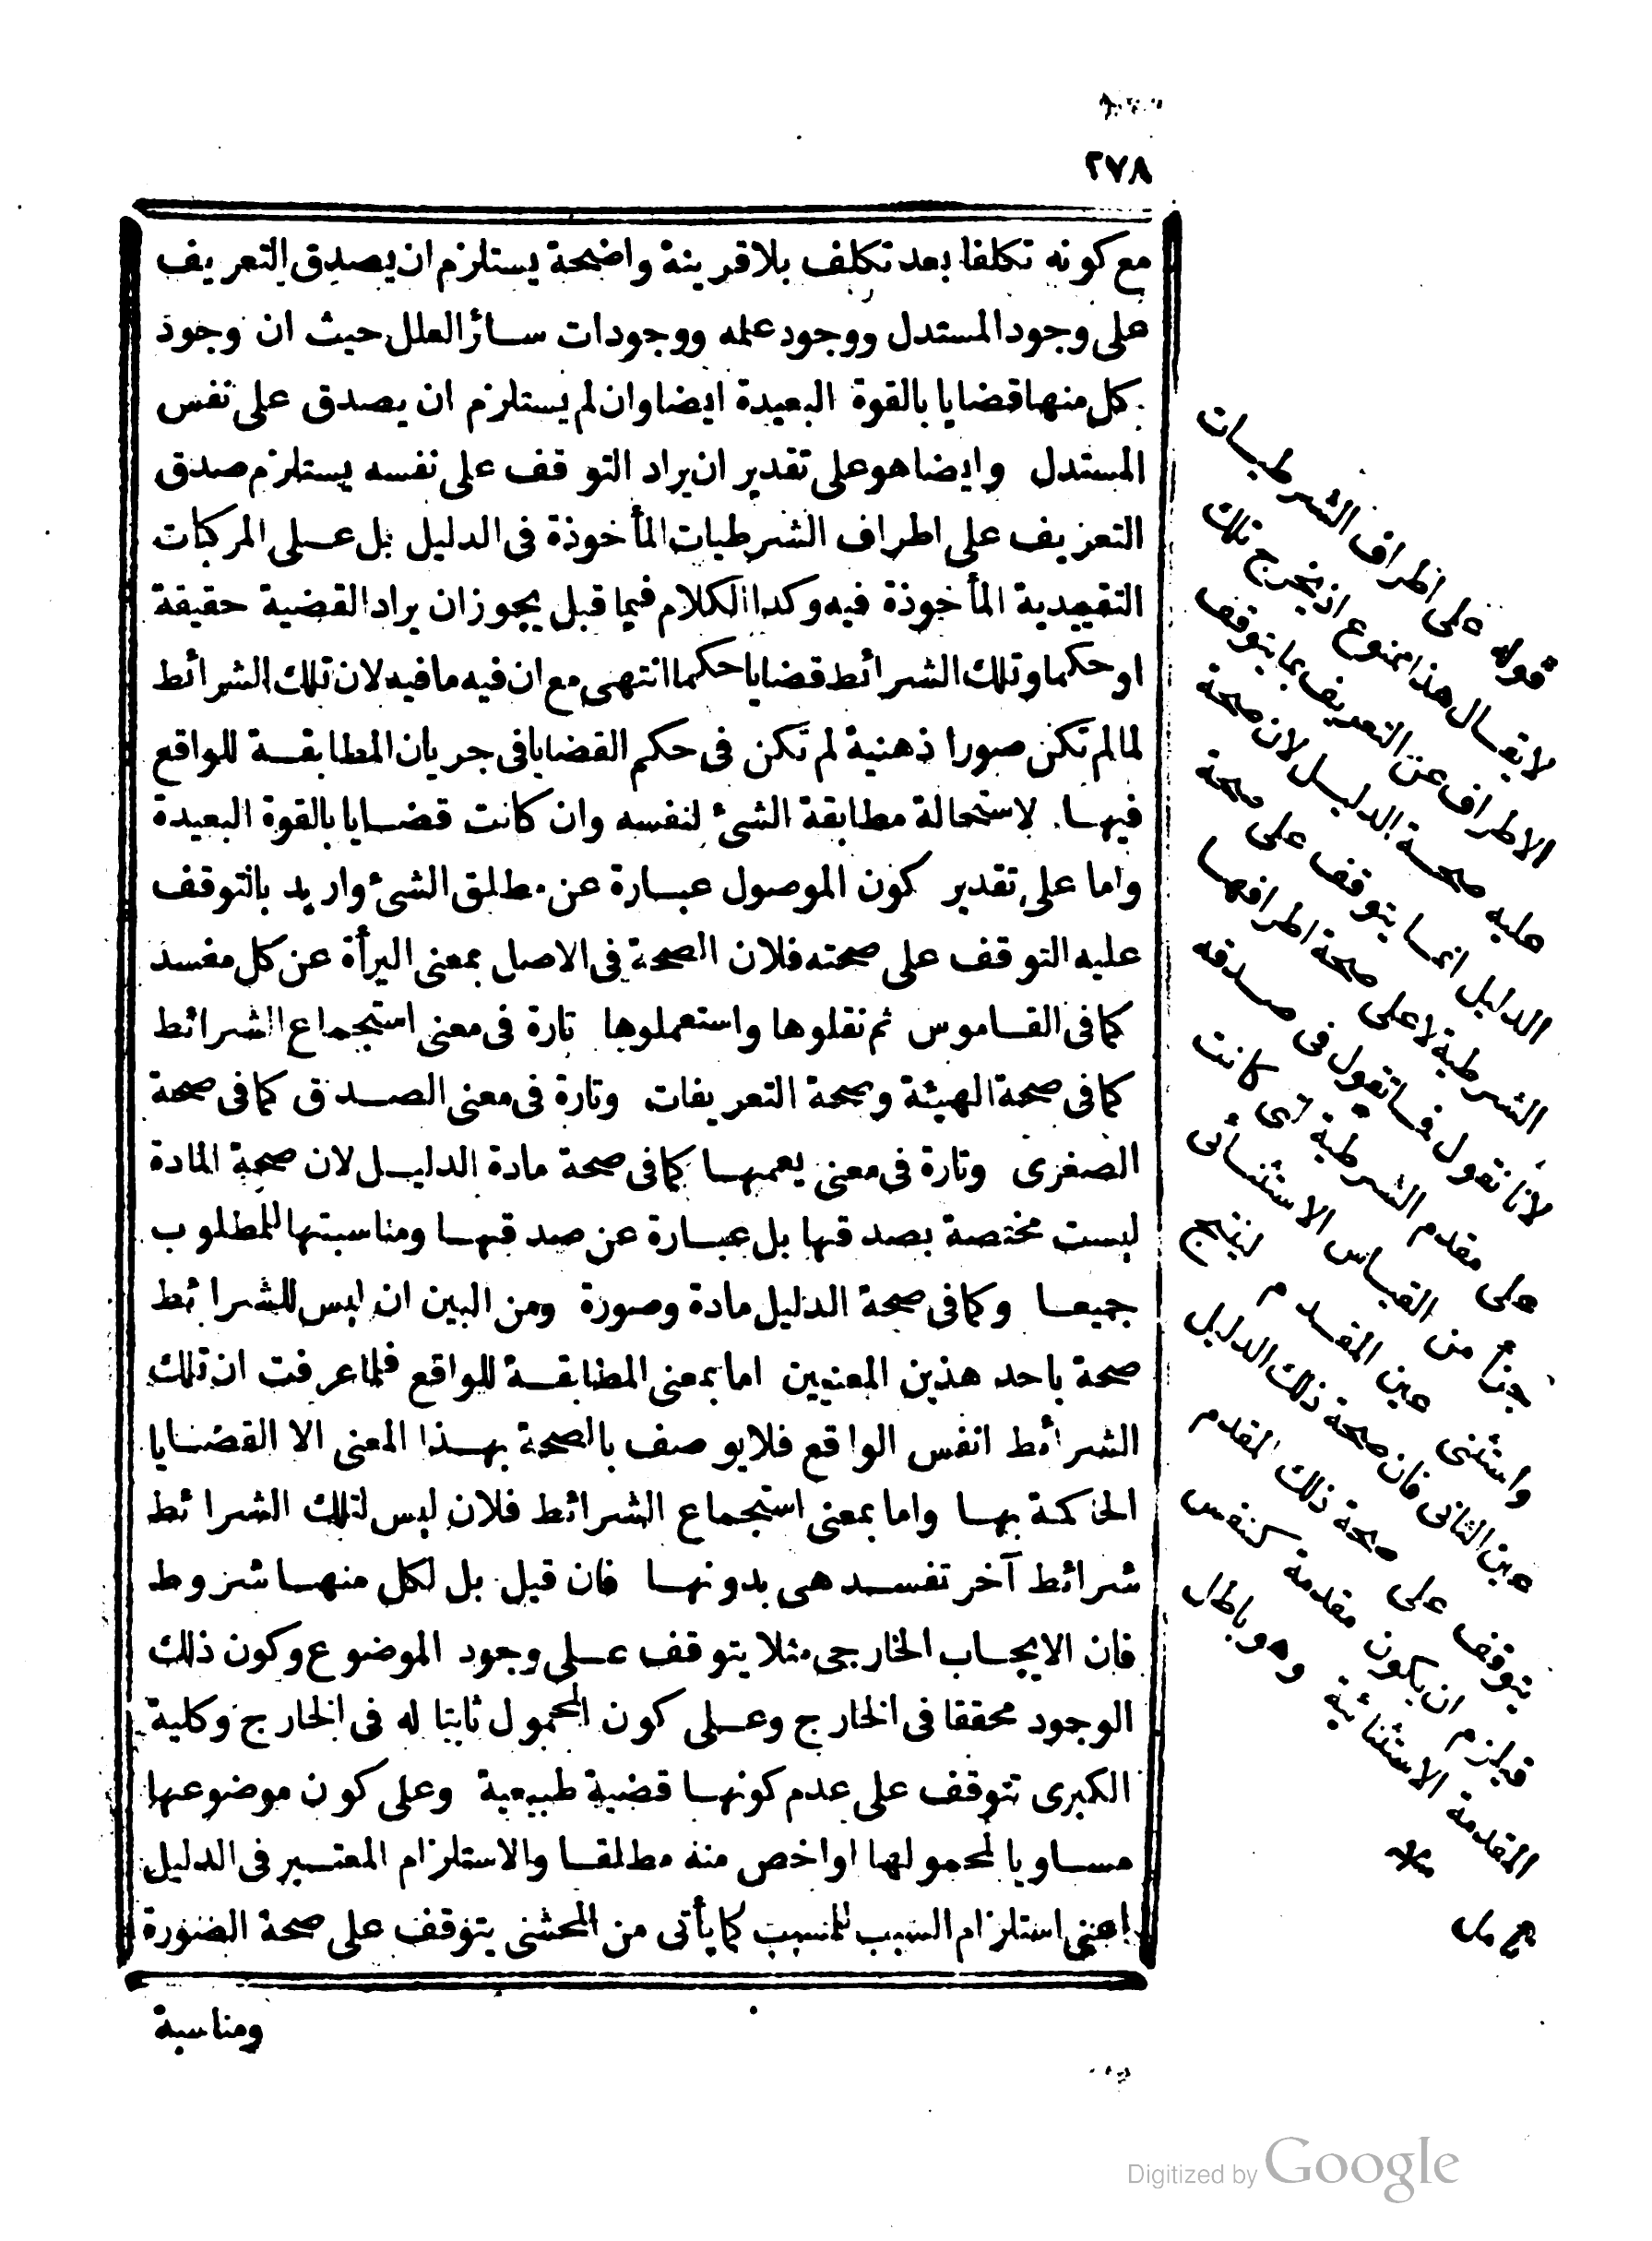 ٢٧٨
مع كونه تكلفا بعد تكلف بلا قرينة واضحة يستلزم ان يصدق التعريف
على وجود المستدل ووجود علمه ووجودات سائر العلل حيث ان وجود
كل منها قضايا بالقوة البعيدة ايضا وان لم يستلزم ان يصدق على نفس
المستدل وايضا هو على تقدير ان يراد التوقف على نفسه يستلزم صدق
التعريف على اطراف الشرطيات المأخوذة فى الدليل بل على المركبات
التقييدية المأخوذة فيه وكذا الكلام فيما قيل يجوز ان يراد القضية حقيقة
او حكما وتلك الشرائط قضايا حكما انتهى مع ان فيه ما فيه لان تلك الشرائط
لما لم تكن صورا ذهنية لم تكن فى حكم القضايا فى جريان المطابقة للواقع
فيها لاستحالة مطابقة الشئ لنفسه وان كانت قضايا بالقوة البعيدة
واما على تقدير كون الموصول عبارة عن مطلق الشئ واريد بالتوقف
عليه التوقف على صحته فلان الصحة فى الاصل بمعنى البرأة عن كل مفسد
كما فى القاموس ثم نقلوها واستعملوها تارة فى معنى استجماع الشرائط
كما فى صحة الهيئة وصحة التعريفات وتارة فى معنى الصدق كما فى صحة
الصغرى وتارة فى معنى يعمها كما فى صحة مادة الدليل لان صحة المادة
ليست مختصة بصدقها بل عبارة عن صدقها ومناسبتها للمطلوب
جميعا وكما فى صحة الدليل مادة وصورة ومن البين ان ليس للشرائط
صحة باحد هذين المعنيين اما بمعنى المطابقة للواقع فلما عرفت ان تلك
الشرائط انفس الواقع فلا يوصف بالصحة بهذا المعنى الا القضايا
الحاكمة بها واما بمعنى استجماع الشرائط فلان ليس لتلك الشرائط
شرائط آخر تفسد هى بدونها فان قيل بل لكل منها شروط
فان الايجاب الخارجى مثلا يتوقف على وجود الموضوع وكون ذلك
الوجود محققا فى الخارج وعلى كون المحمول ثابتا له فى الخارج وكلية
الكبرى تتوقف على عدم كونها قضية طبيعية وعلى كون موضوعها
مساويا لمحمولها او اخص منه مطلقا والاستلزام المعتبر فى الدليل
اعنى استلزام السبب للمسبب كما يأتى من المحشى يتوقف على صحة الصورة
ومناسبة
قوله على اطراف الشرطيات
لا يقال هذا ممنوع اذ يخرج تلك
الاطراف عن التعريف بما يتوقف
عليه صحة الدليل لان صحة
الدليل انما يتوقف على صحة
الشرطية لا على صحة اطرافها
لانا نقول فما تقول فى صدقه
على مقدم الشرطية التى كانت
جزأ من القياس الاستثنائى
واستثنى عين المقدم لينتج
عين التالى فان صحة ذلك الدليل
يتوقف على صحة ذلك المقدم
فيلزم ان يكون مقدمة كنفس
المقدمة الاستثنائية وهو باطل
منه
Digitized by Google